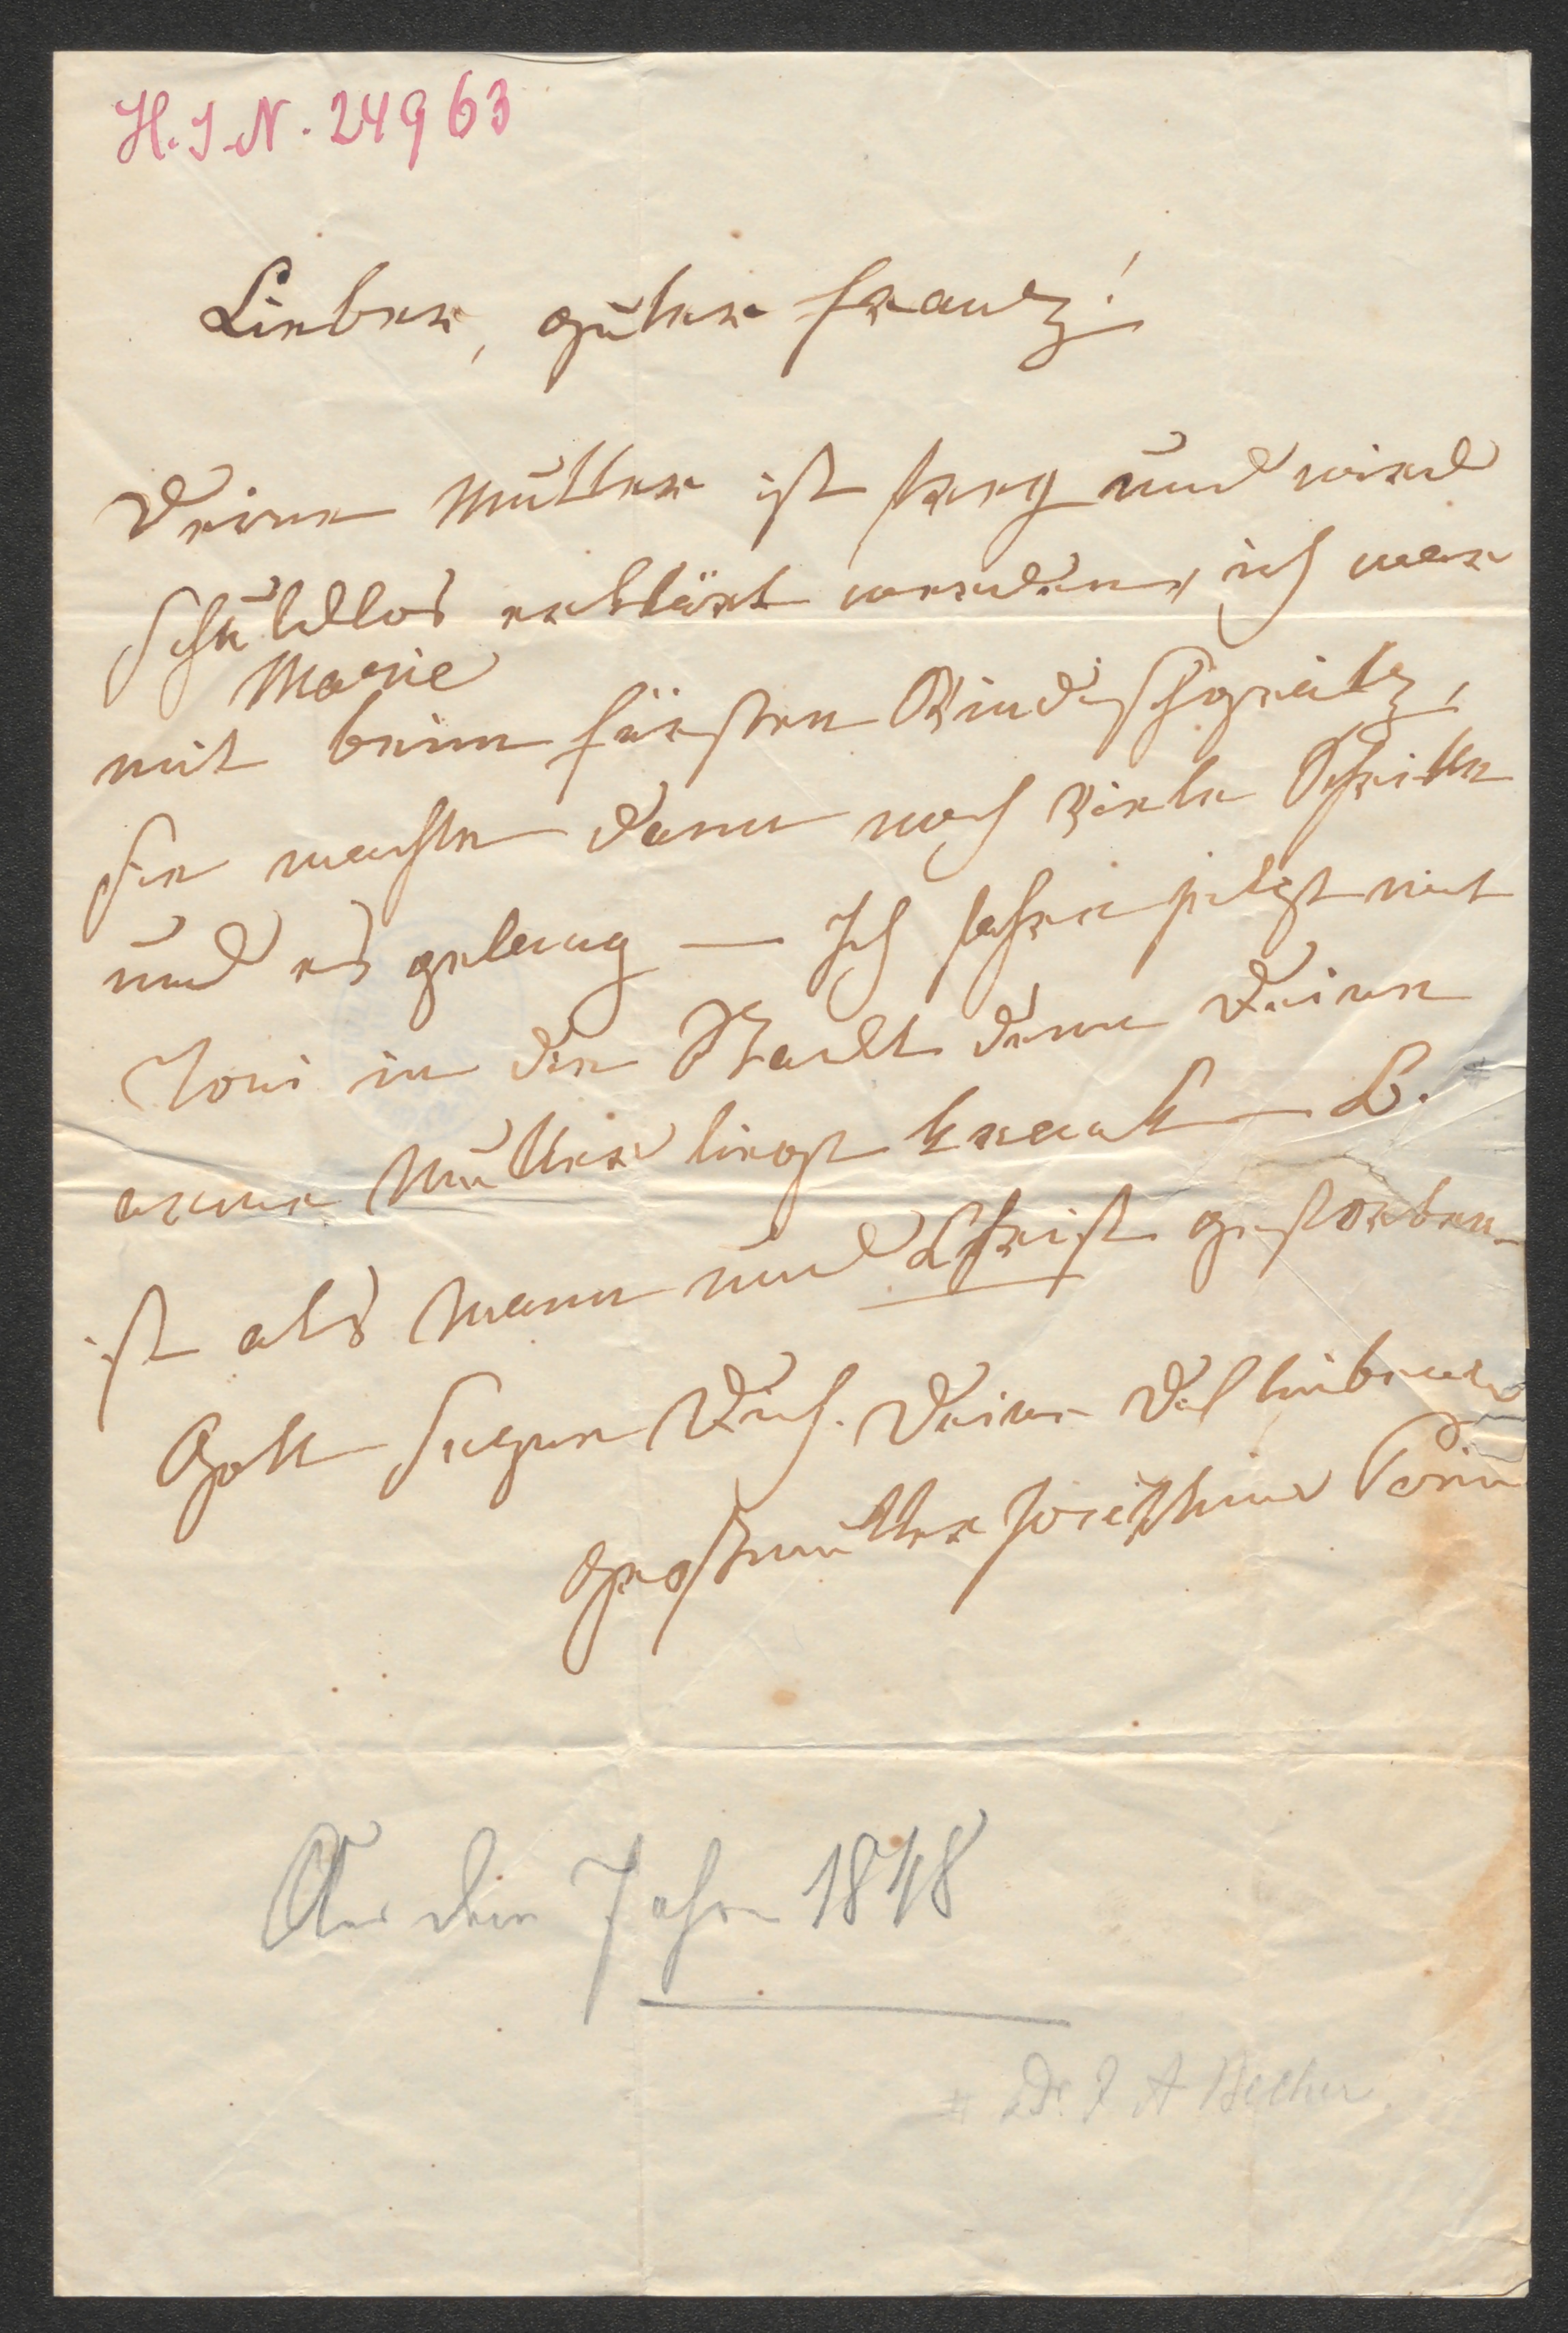 H. I. N. 24963
Lieber, guter Franz!
Deine Mutter ist frey und wird
schuldlos erklärt werden, ich war
mit Marie beim Fürsten Windischgrätz,
sie machte dann noch viele Schritte
und es gelang — Ich fahre jetzt mit
Toni in die Stadt denn Deine
arme Mutter liegt krank — B. #
ist als Mann und Christ gestorben —
Gott segne Dich. Deine Dich liebende
Großmutter Josephine Perin
Aus dem Jahre 1848
# Dr. J A Becher